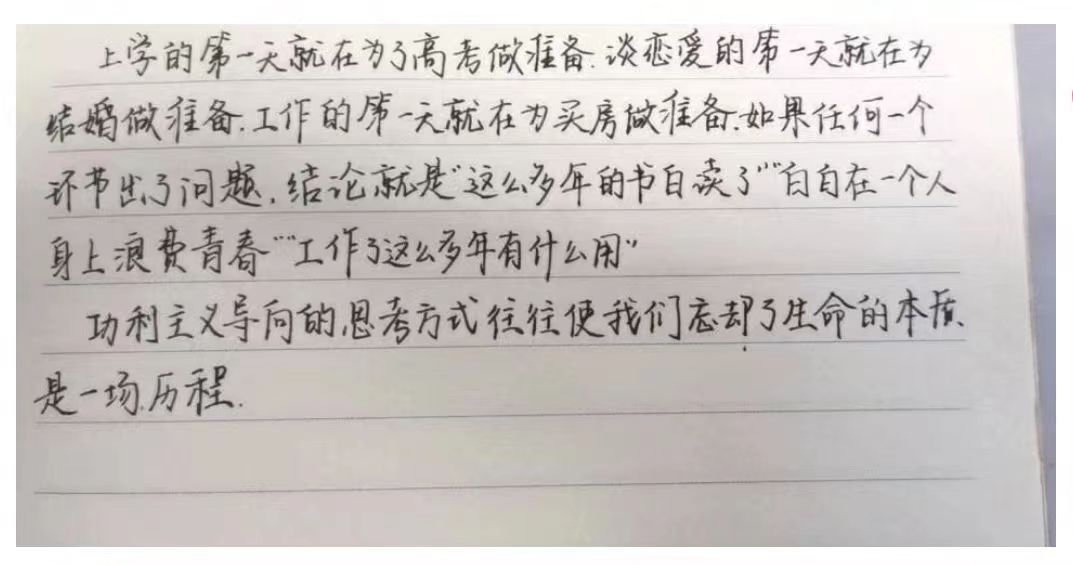 上学的第一天就在为了高考做准备.谈恋爱的第一天就在为
结婚做准备.工作的第一天就在为买房做准备.如果任何一个
环节出了问题,结论就是"这么多年的书白读了""白白在一个人
身上浪费青春""工作了这么多年有什么用"
功利主义导向的思考方式往往使我们忘却了生命的本质、
是一场历程.